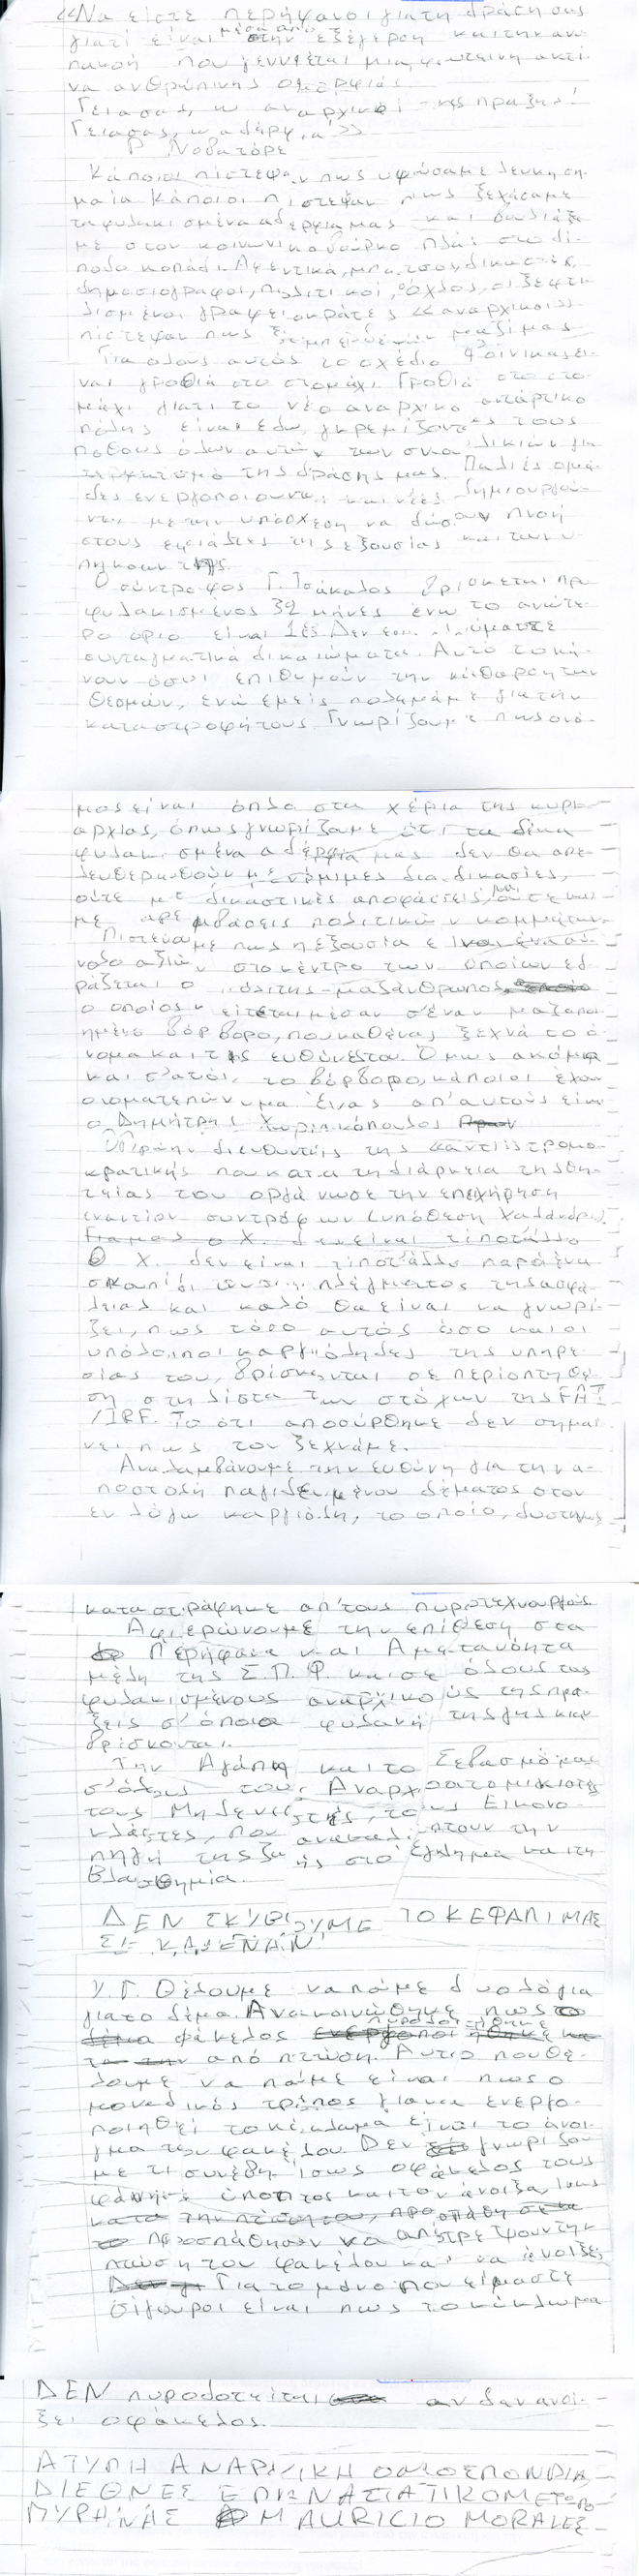 «Να είστε περήφανοι για τη δράση σας
γιατί είναι μέσα από την εξέγερση και την ανυ-
πακοή που γεννιέται μια φωτεινή ακτί-
να ανθρώπινης ομορφιάς.
Γεια σας, ω αναρχικοί της πράξης!
Γεια σας, ω αδέρφια!»
Ρ Νοβατόρε
Κάποιοι πίστεψαν πως υψώσαμε λευκή ση-
μαία Κάποιοι πίστεψαν πως ξεχάσαμε
τα φυλακισμένα αδέρφια μας και δουλιάξα
με στον κοινωνικο βούρκο πλάι στο δί-
ποδο κοπάδι. Αφεντικά, μπάτσοι, δικαστές,
δημοσιογράφοι, πολιτικοί, όχλος, οι ξεφτι-
λισμένοι γραφειοκράτες «αναρχικοί»
πίστεψαν πως ξεμπέρδεψαν μαζί μας
Για όλους αυτούς το σχέδιο Φοίνικας εί-
ναι γροθιά στο στομάχι Γροθιά στο στο-
μάχι γιατί το νέο αναρχικό αντάρτικο
πόλης είναι εδώ, γκρεμίζοντας τους
πόθους όλων αυτών των σκουλικιών για
τερματισμό της δράσης μας. Παλιές ομά-
δες ενεργοποιούνται και νέες δημιουργού-
νται με την υπόσχεση να δώσουν πνοή
στους εφιάλτες της εξουσίας και των υ-
πηκόων της.
Ο σύντροφος Γ. Τσάκαλος βρίσκεται προ
φυλακισμένος 32 μήνες ενώ το ανώτε-
ρο όριο είναι 18. Δεν επικαλούμαστε
συνταγματικά δικαιώματα. Αυτό το κά-
νουν όσοι επιθυμούν την κάθαρση των
θεσμών, ενώ εμείς πολεμάμε για την
καταστροφή τους. Γνωρίζουμε πως οι νό-
μοι είναι όπλα στα χέρια της κυρι-
αρχίας, όπως γνωρίζουμε ότι τα δέκα
φυλακισμένα αδέρφια μας δεν θα απε-
λευθερωθούν με νόμιμες διαδικασίες,
ούτε με δικαστικές αποφάσεις, μα ούτε και
με παρεμβάσεις πολιτικών κομμάτων.
Πιστεύουμε πως η εξουσία είναι ένα σύ-
νολο αξιών στο κέντρο των οποίων εδ-
ράζεται ο πολίτης-μαζάνθρωπος
ο οποίος κείτεται μέσα σ'έναν μαζοποι-
ημένο βόρβορο, που καθένας ξεχνά το ό-
νομα και την ευθύνη του. Όμως ακόμα
και σ'αυτόν το βόρβορο, κάποιοι έχουν
ονοματεπώνυμα. Ένας απ'αυτούς είναι
ο Δημήτρης Χωριανόπουλος
διευθυντής της αντιτρομο-
κρατικής που κατά τη διάρκεια της θη-
τείας του οργάνωσε την επιχείρηση
εναντίον συντρόφων (υπόθεση Χαλάνδρι).
Για μας ο Χ. δεν είναι τίποτ'άλλο
Ο Χ. δεν είναι τίποτ'άλλο παρά ένα
σκουπίδι του συμπλέγματος της ασφά-
λειας και καλό θα είναι να γνωρί-
ζει, πως τόσο αυτός όσο και οι
υπόλοιποι καργιόληδες της υπηρε-
σίας του, βρίσκονται σε περίοπτη θέ-
ση στη λίστα των στόχων της FAI
/IRF. Το ότι αποσύρθηκε δεν σημαί
νει πως τον ξεχνάμε.
Αναλαμβάνουμε την ευθύνη για την α-
ποστολή παγιδευμένου δέματος στον
εν λόγω καργιόλη, το οποίο, δυστυχώς
καταστράφηκε απ'τους πυροτεχνουργούς
Αφιερώνουμε την επίθεση στα
Περήφανα και Αμετανόητα
μέλη της Σ.Π.Φ. και σε όλους τους
φυλακισμένους αναρχικούς της πρά-
ξεις σ'όποια φυλακή της γης και αν
βρίσκονται.
Την Αγάπη και το Σεβασμό μας
σ'όλους τους Αναρχοατομικιστές
τους Μηδενιστές, τους Εικονο-
κλάστες, που ανακαλύπτουν την
πηγή της ζωής στο Έγκλημα και τη
Βλασφημία.
ΔΕΝ ΣΚΥΒΟΥΜΕ ΤΟ ΚΕΦΑΛΙ ΜΑΣ
ΣΕ ΚΑΝΕΝΑΝ!
Υ.Γ. Θέλουμε να πούμε δυο λόγια
για το δέμα. Ανακοινώθηκε πως ο
φάκελος πυροδοτήθηκε
από πτώση. Αυτό που θέ-
λουμε να πούμε είναι πως ο
μοναδικός τρόπος για να ενεργο-
ποιηθεί το κύκλωμα είναι το άνοι-
γμα του φακέλου. Δεν γνωρίζου
με τι συνέβη, ίσως ο φάκελος τους
φάνηκε ύποπτος και τον άνοιξαν, ίσως
κατά την πτώση του, προσπάθησε να
προσπάθησαν να αποτρέψουν την
πτώση του φακέλου και να άνοιξε
Για το μόνο που είμαστε
σίγουροι είναι πως το κύκλωμα
ΔΕΝ πυροδοτείται αν δεν ανοί-
ξει ο φάκελος.
ΑΤΥΠΗ ΑΝΑΡΧΙΚΗ ΟΜΟΣΠΟΝΔΙΑ
ΔΙΕΘΝΕΣ ΕΠΑΝΑΣΤΑΤΙΚΟ ΜΕΤΩΠΟ
ΠΥΡΗΝΑΣ MAURICIO MORALES